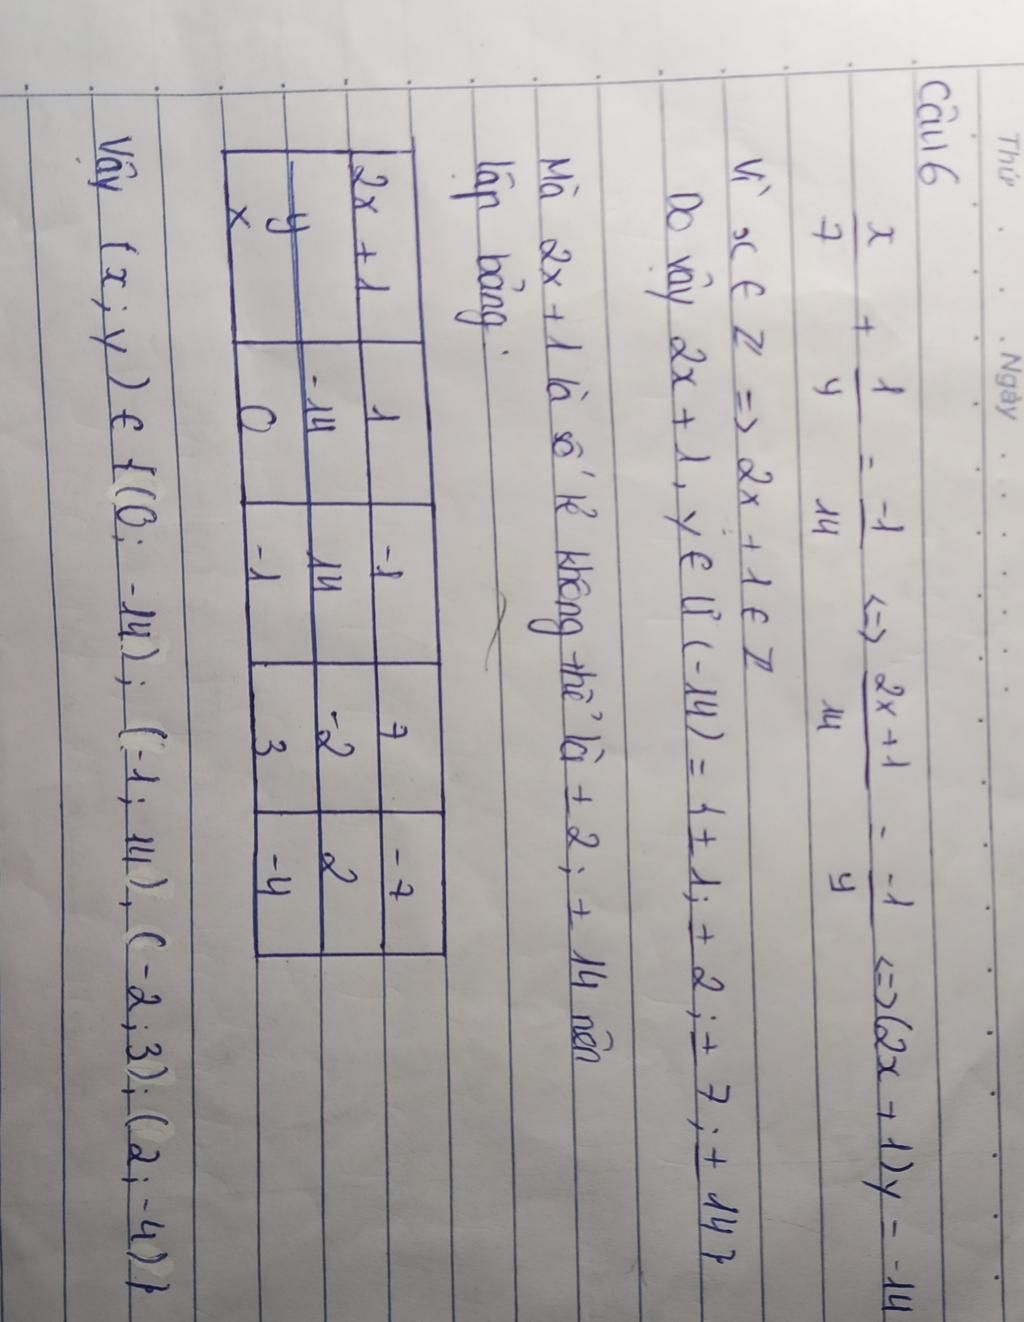 Thứ Ngày
Câu 6
x/7 + 1/y = -1/14 <=> 2x+1/14 = -1/y <=> (2x + 1)y = -14
Vì x ∈ Z => 2x + 1 ∈ Z
Do vây 2x + 1, y ∈ Ư (-14) = {± 1; ± 2; ± 7; ± 14}
Mà 2x + 1 là số lẻ không thể là ± 2; ± 14 nên
lâp bảng:
2x + 1 1 -1 7 -7
y -14 14 -2 2
x 0 -1 3 -4
Vây (x; y) ∈ {(0; -14); (-1; 14), (-2; 3); (2; -4)}